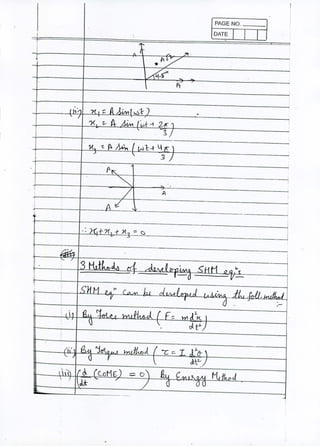 PAGE NO.
DATE
A
A√2
45°
A
(ii) x₁ = A sin(ωt)
x₂ = A sin (ωt + 2π/3)
x₃ = A sin (ωt + 4π/3)
A
A
A
∴ x₁ + x₂ + x₃ = 0
3 Methods of developing SHM eqⁿs
SHM eqⁿ can be developed using the foll. method :-
(i) By Force method ( F = m d²x/dt² )
(ii) By Torque method ( τ = I d²θ/dt² )
(iii) ( d/dt (COME) = 0 ) By Energy Method.